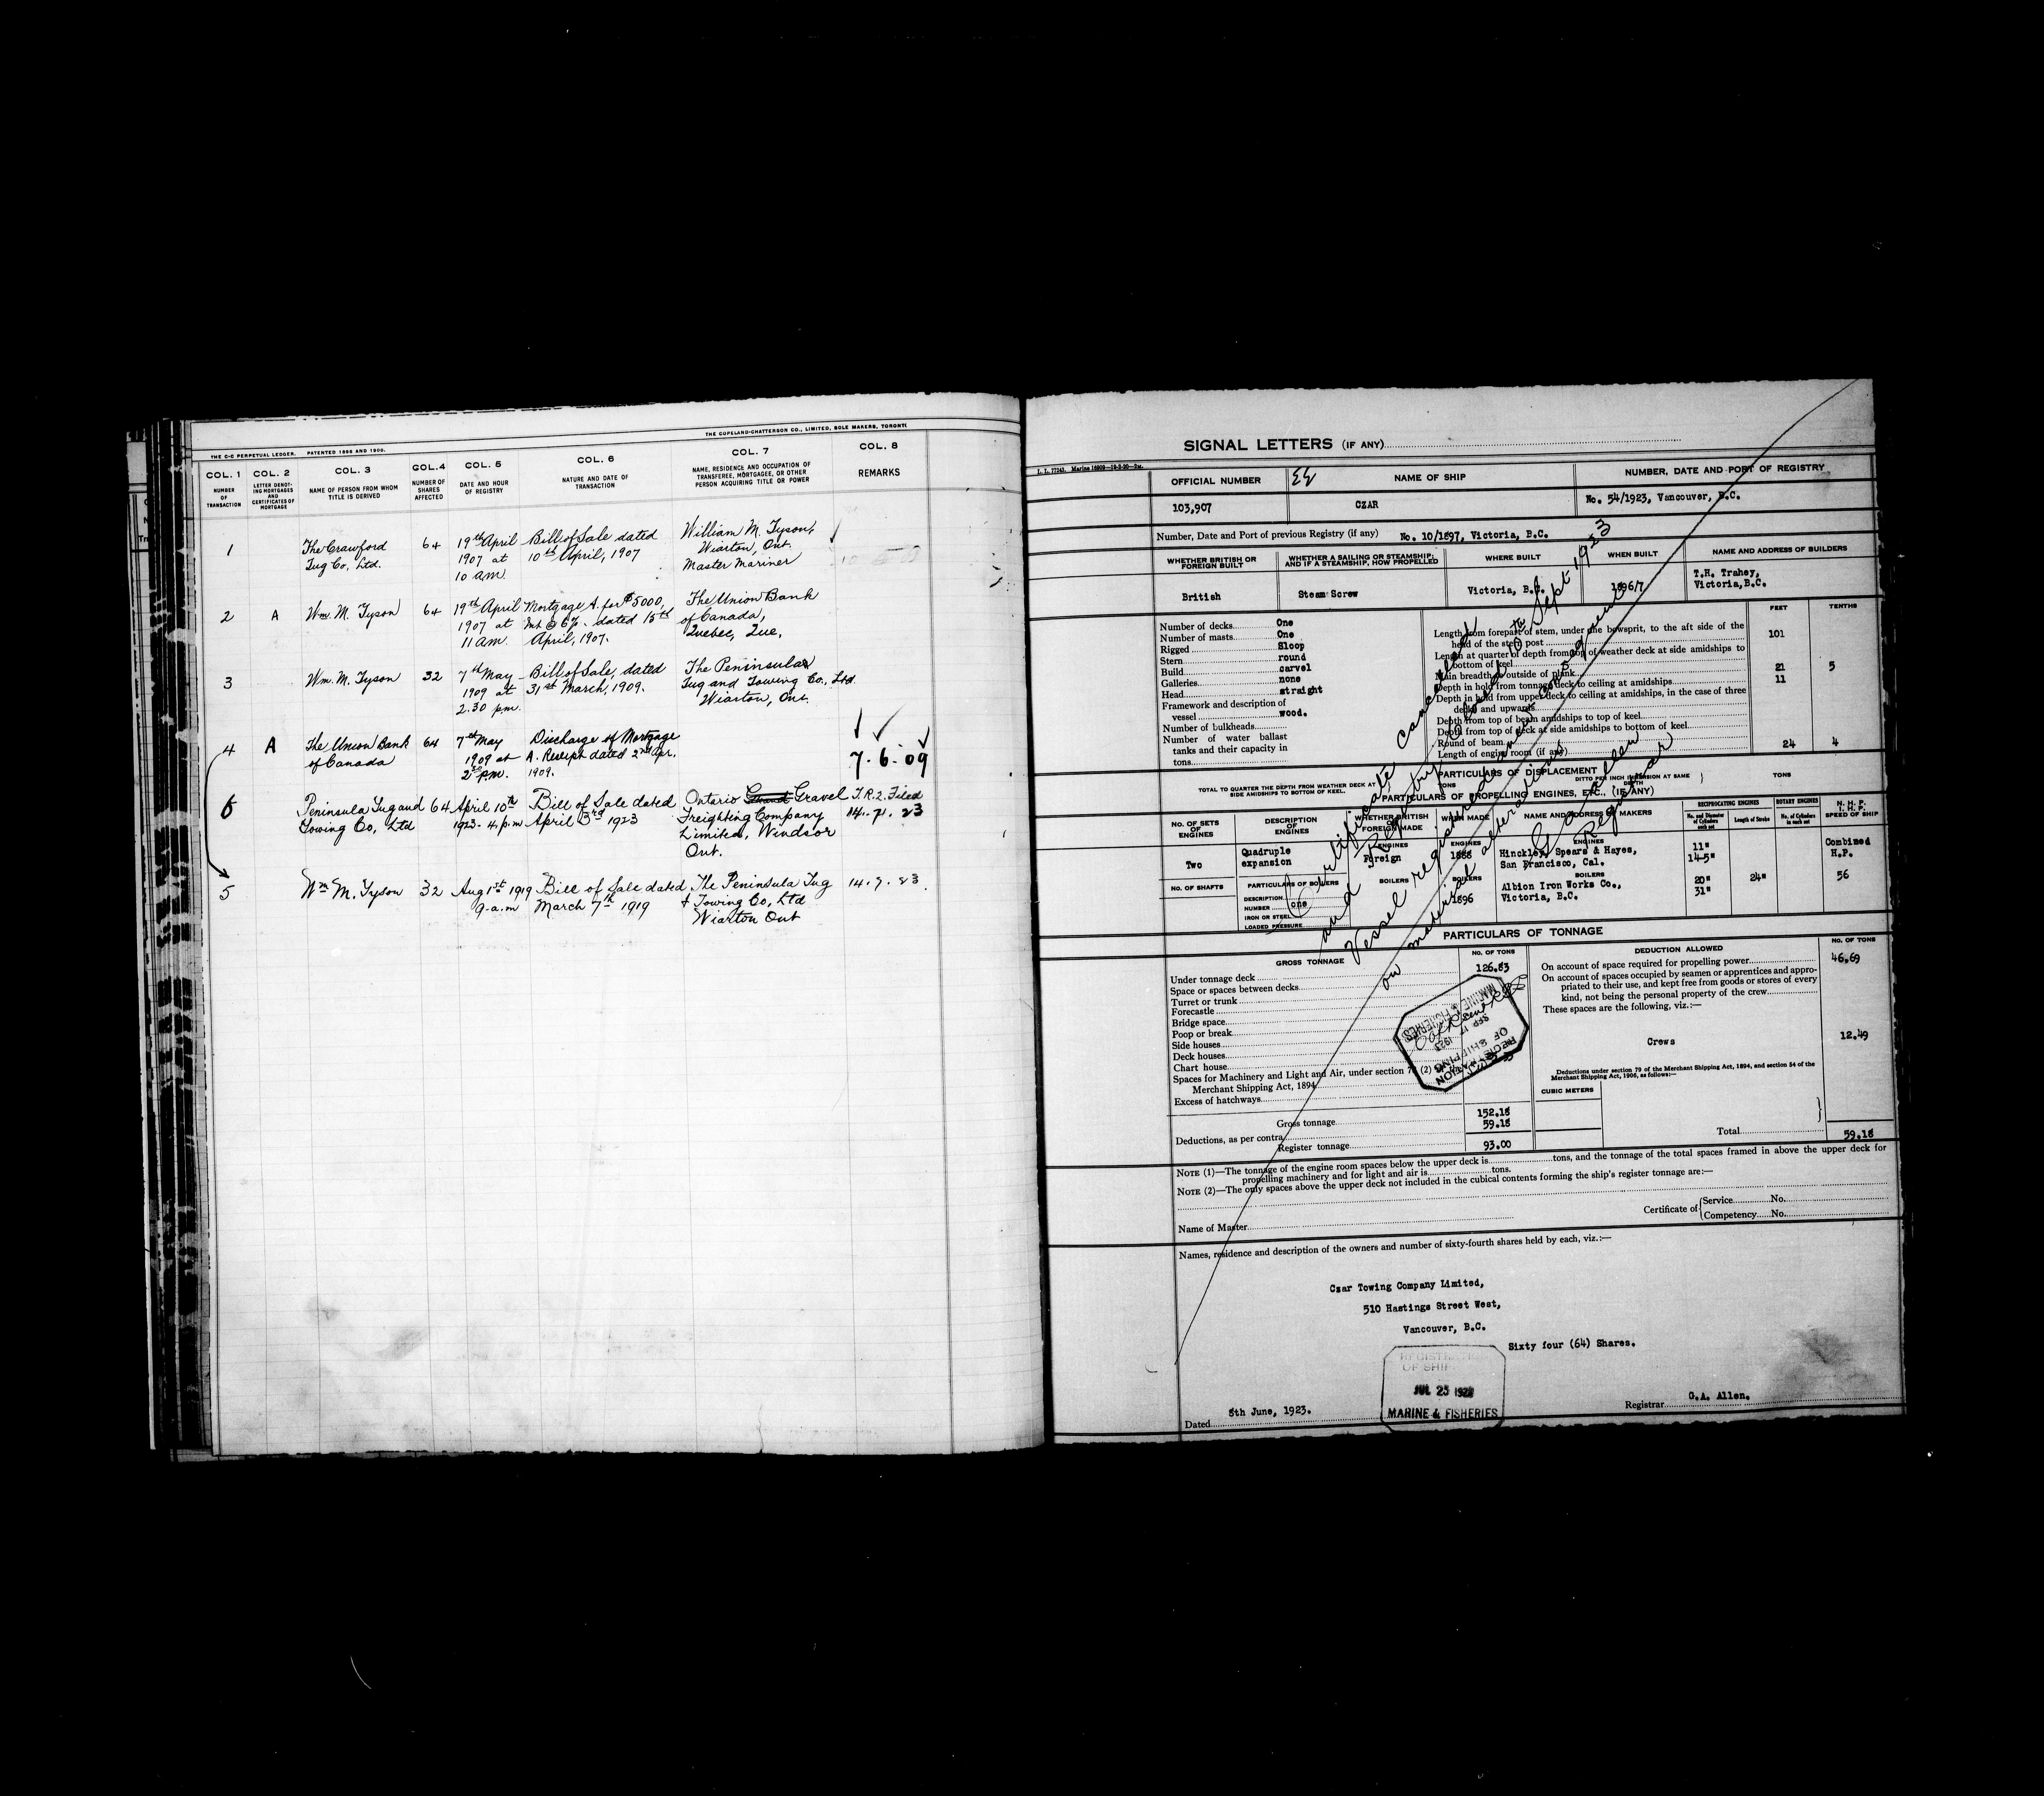 THE C-C PERPETUAL LEDGER. PATENTED 1898 AND 1900. THE COPELAND-CHATTERSON CO., LIMITED, SOLE MAKERS, TORONTO
COL. 1 COL. 2 COL. 3 COL. 4 COL. 5 COL. 6 COL. 7 COL. 8
NUMBER OF TRANSACTION
LETTER DENOTING MORTGAGES AND CERTIFICATES OF MORTGAGE
NAME OF PERSON FROM WHOM TITLE IS DERIVED
NUMBER OF SHARES AFFECTED
DATE AND HOUR OF REGISTRY
NATURE AND DATE OF TRANSACTION
NAME, RESIDENCE AND OCCUPATION OF TRANSFEREE, MORTGAGEE, OR OTHER PERSON ACQUIRING TITLE OR POWER
REMARKS
1 The Crawford 64 19th April Bill of Sale dated William M. Tyson,
Tug Co, Ltd. 1907 at 10th April, 1907 Wiarton, Ont.
10 a.m. Master Mariner
2 A Wm. M. Tyson 64 19th April Mortgage A. for $5000, The Union Bank
1907 at Int @ 6%. dated 15th of Canada,
11 am. April, 1907. Quebec, Que,
3 Wm. M. Tyson 32 7th May Bill of Sale, dated The Peninsular
1909 at 31st March, 1909. Tug and Towing Co., Ltd
2.30 p.m. Wiarton, Ont.
4 A The Union Bank 64 7th May Discharge of Mortgage
of Canada 1909 at A. Receipt dated 2nd Apr. 7.6.09
2 30 P.M. 1909.
6 Peninsula Tug and 64 April 10th Bill of Sale dated Ontario Gravel T.R.2. Filed
Towing Co, Ltd 1923. 4. p.m April 3rd 1923 Freighting Company 14. 7. 23
Limited, Windsor
Ont.
5 Wm M. Tyson 32 Aug 1st 1919 Bill of Sale dated The Peninsula Tug 14.7.23
9-a.m March 7th 1919 & Towing Co, Ltd
Wiarton Ont
SIGNAL LETTERS (IF ANY)
L. L. 77243.
OFFICIAL NUMBER NAME OF SHIP NUMBER, DATE AND PORT OF REGISTRY
103,907 CZAR No. 54/1923, Vancouver, B.C.
Number, Date and Port of previous Registry (if any) No. 10/1897, Victoria, B.C.
WHETHER BRITISH OR FOREIGN BUILT
WHETHER A SAILING OR STEAMSHIP; AND IF A STEAMSHIP, HOW PROPELLED
WHERE BUILT WHEN BUILT NAME AND ADDRESS OF BUILDERS
British Steam Screw Victoria, B.C. 1896/7 T.H. Trahey,
Victoria, B.C.
FEET TENTHS
Number of decks One
Number of masts One
Rigged Sloop
Stern round
Build carvel
Galleries none
Head straight
Framework and description of
vessel wood.
Number of bulkheads
Number of water ballast
tanks and their capacity in
tons
Length from forepart of stem, under the bowsprit, to the aft side of the
head of the stern post 101
Length at quarter of depth from top of weather deck at side amidships to
bottom of keel
Main breadth outside of plank 21 5
Depth in hold from tonnage deck to ceiling at amidships 11
Depth in hold from upper deck to ceiling at amidships, in the case of three
decks and upwards
Depth from top of beam amidships to top of keel
Depth from top of deck at side amidships to bottom of keel
Round of beam
Length of engine room (if any) 24 4
PARTICULARS OF DISPLACEMENT
TOTAL TO QUARTER THE DEPTH FROM WEATHER DECK AT SIDE AMIDSHIPS TO BOTTOM OF KEEL. TONS
DITTO PER INCH IMMERSION AT SAME DEPTH TONS
PARTICULARS OF PROPELLING ENGINES, ETC., (IF ANY)
NO. OF SETS OF ENGINES
DESCRIPTION OF ENGINES
WHETHER BRITISH OR FOREIGN MADE
WHEN MADE
NAME AND ADDRESS OF MAKERS
RECIPROCATING ENGINES ROTARY ENGINES
No. and Diameter of Cylinders in each set
Length of Stroke
No. of Cylinders in each set
N. H. P.
I. H. P.
SPEED OF SHIP
ENGINES ENGINES ENGINES
Two Quadruple expansion Foreign 1888 Hinckley, Spears & Hayes,
San Francisco, Cal.
11"
14.5"
20"
31"
24"
Combined
H.P.
56
NO. OF SHAFTS PARTICULARS OF BOILERS BOILERS BOILERS BOILERS
DESCRIPTION
NUMBER one
IRON OR STEEL
LOADED PRESSURE
1896 Albion Iron Works Co.,
Victoria, B.C.
PARTICULARS OF TONNAGE
GROSS TONNAGE NO. OF TONS DEDUCTION ALLOWED NO. OF TONS
Under tonnage deck 126.83
Space or spaces between decks
Turret or trunk
Forecastle
Bridge space
Poop or break
Side houses
Deck houses
Chart house
Spaces for Machinery and Light and Air, under section 78 (2) of the
Merchant Shipping Act, 1894
Excess of hatchways
Gross tonnage 152.18
Deductions, as per contra 59.18
Register tonnage 93.00
On account of space required for propelling power 46.69
On account of spaces occupied by seamen or apprentices and appro-
priated to their use, and kept free from goods or stores of every
kind, not being the personal property of the crew
These spaces are the following, viz.:—
Crews 12.49
Deductions under section 79 of the Merchant Shipping Act, 1894, and section 54 of the
Merchant Shipping Act, 1906, as follows:—
CUBIC METERS
Total 59.18
NOTE (1)—The tonnage of the engine room spaces below the upper deck is tons, and the tonnage of the total spaces framed in above the upper deck for
propelling machinery and for light and air is tons.
NOTE (2)—The only spaces above the upper deck not included in the cubical contents forming the ship's register tonnage are:—
Name of Master
Certificate of Service No.
Competency No.
Names, residence and description of the owners and number of sixty-fourth shares held by each, viz.:—
Czar Towing Company Limited,
510 Hastings Street West,
Vancouver, B.C.
Sixty four (64) Shares.
Dated 8th June, 1923.
Registrar G.A. Allen.
OF SHIP
JUL 23
MARINE & FISHERIES
REGISTRATION
OF SHIPPING
SEP 17 1923
MARINE & FISHERIES
Certificate cancelled
and Registry closed 10th Sept 1923
Vessel registered anew on account
on material alterations
G A Allen
Registrar